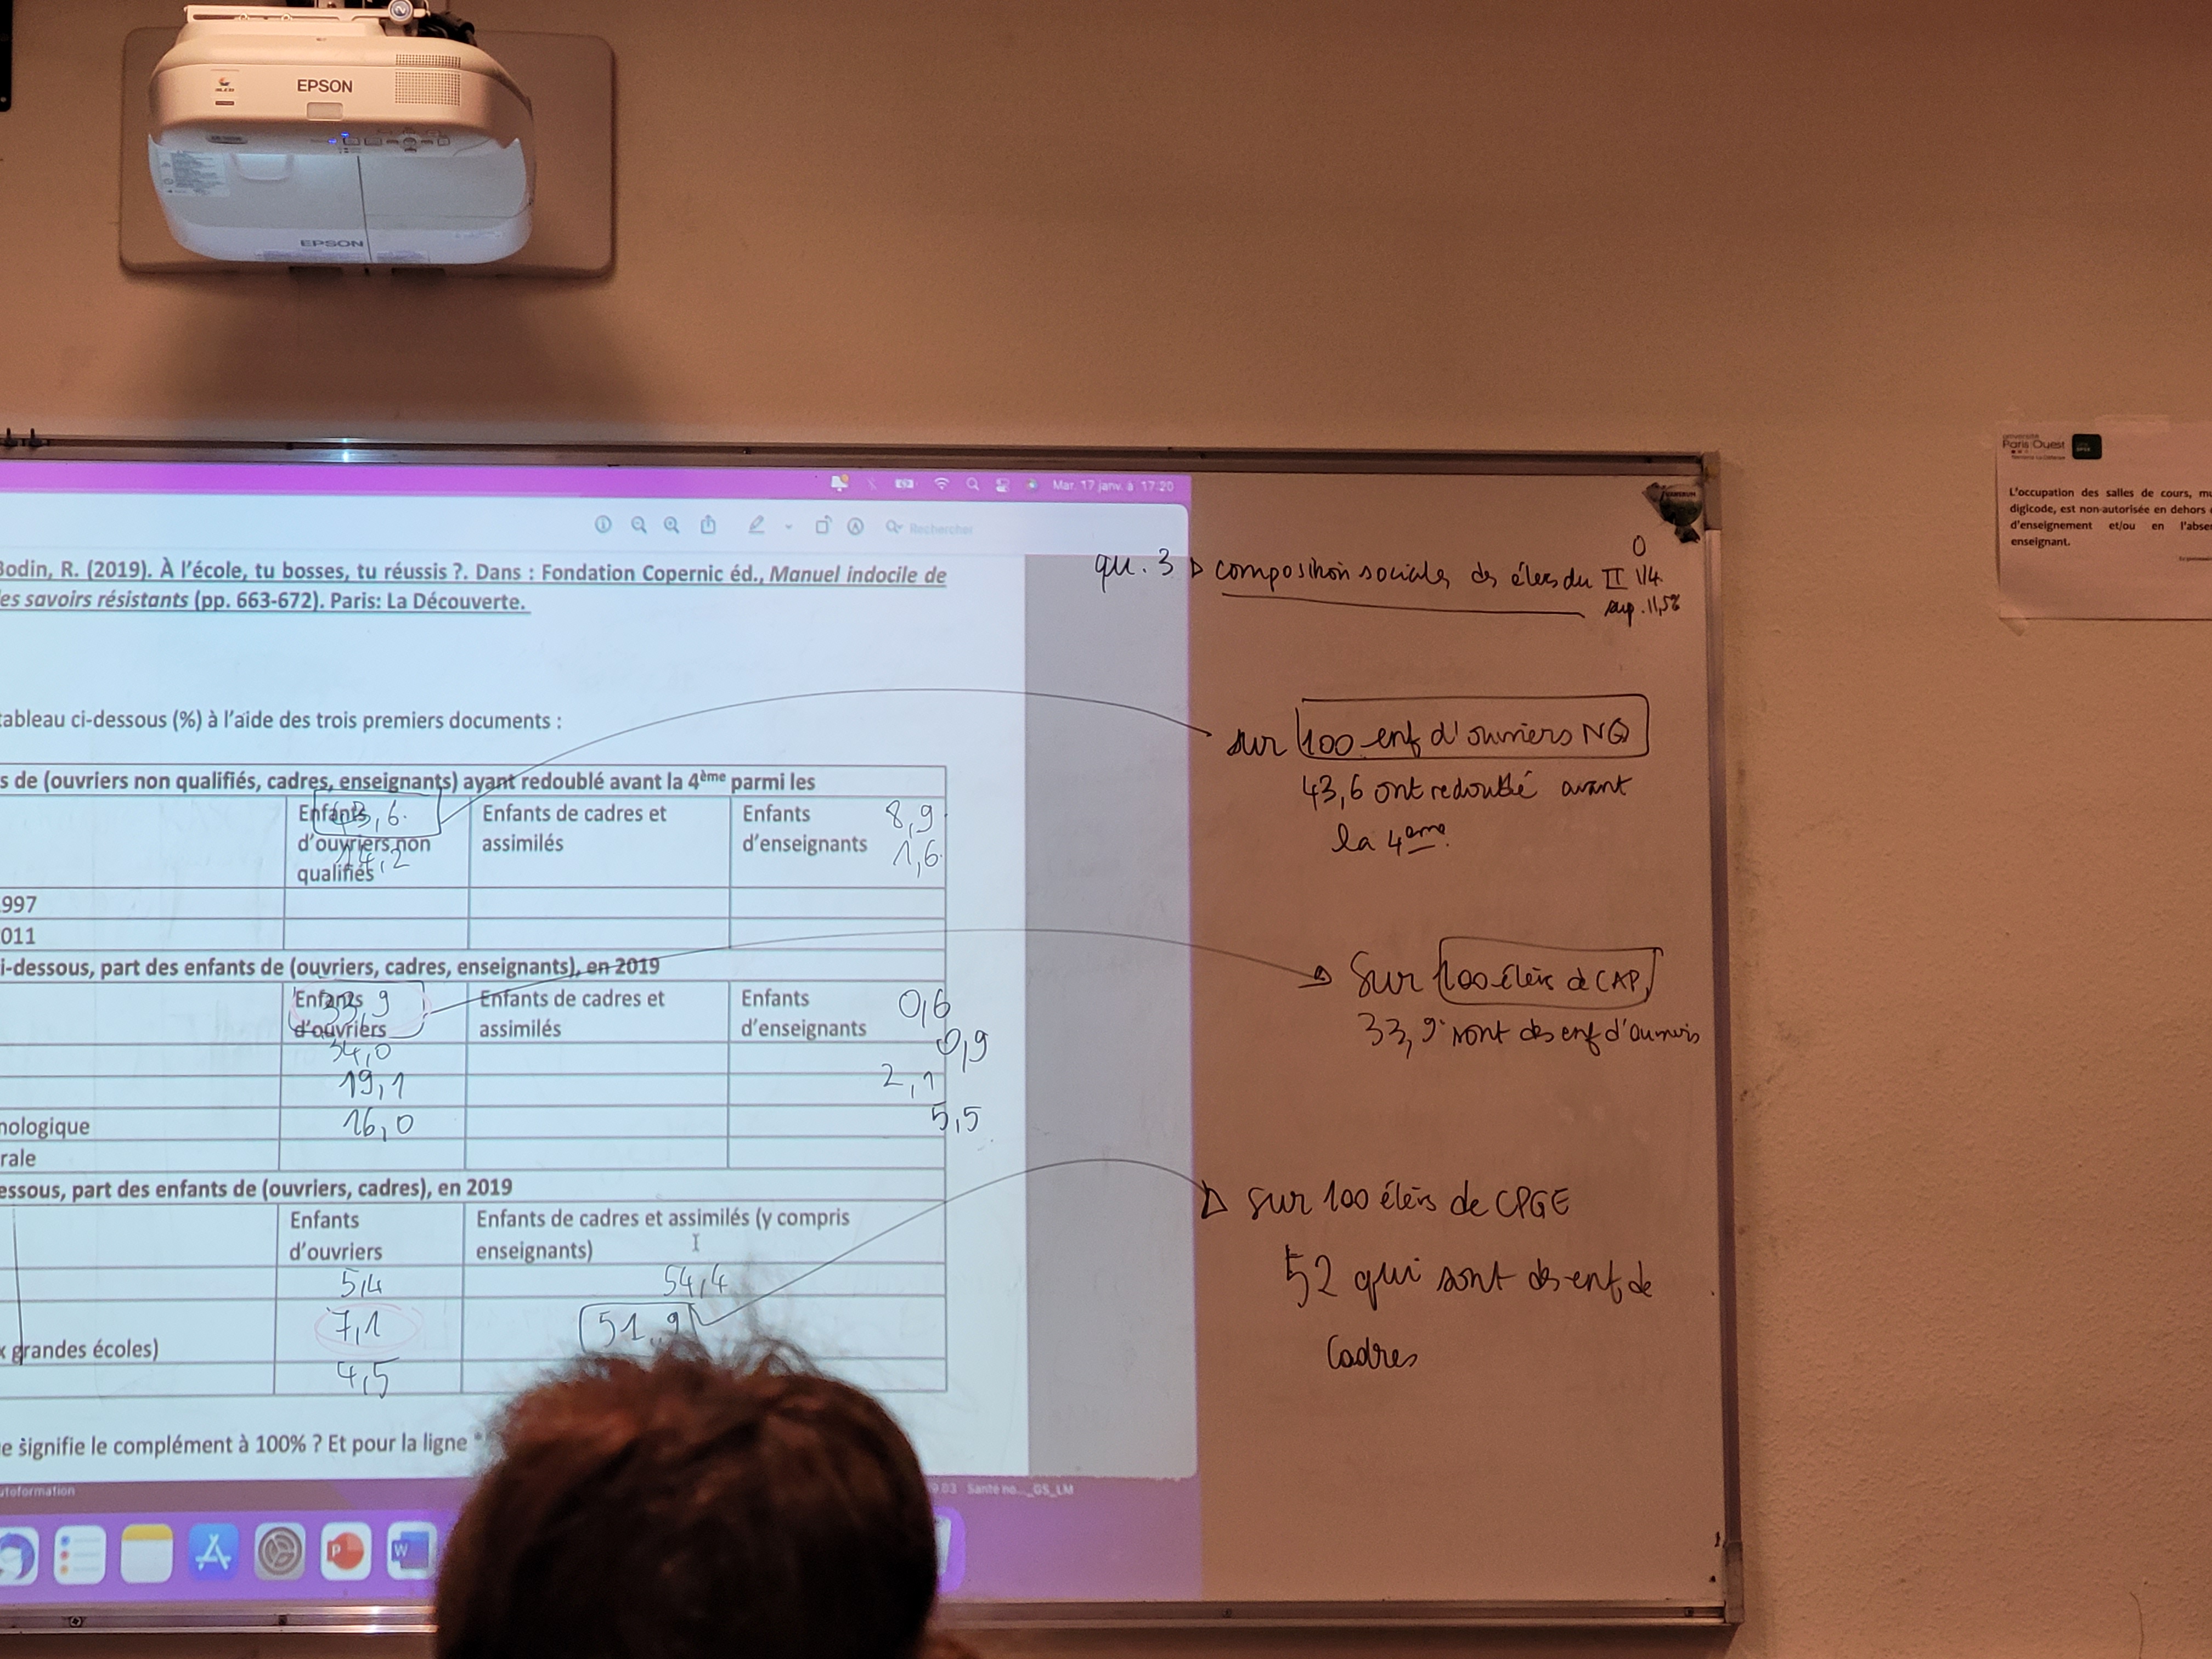 EPSON
EPSON
Mar. 17 janv. à 17:20
Rechercher
Bodin, R. (2019). À l'école, tu bosses, tu réussis ?. Dans : Fondation Copernic éd., Manuel indocile de
es savoirs résistants (pp. 663-672). Paris: La Découverte.
tableau ci-dessous (%) à l'aide des trois premiers documents :
s de (ouvriers non qualifiés, cadres, enseignants) ayant redoublé avant la 4ème parmi les
Enfants d'ouvriers non qualifiés
43,6
14,2
Enfants de cadres et assimilés
Enfants d'enseignants
8,9
1,6
997
011
i-dessous, part des enfants de (ouvriers, cadres, enseignants), en 2019
Enfants d'ouvriers
33,9
Enfants de cadres et assimilés
Enfants d'enseignants
0,6
34,0
0,9
19,1
2,1
nologique
16,0
5,5
rale
essous, part des enfants de (ouvriers, cadres), en 2019
Enfants d'ouvriers
Enfants de cadres et assimilés (y compris enseignants)
5,4
54,4
7,1
51,9
x grandes écoles)
4,5
e signifie le complément à 100% ? Et pour la ligne "
utoformation
Santé no..._GS_LM
P
W
qu. 3 composition sociale des élèves du II
0
1/4
sup. 11,5%
sur 100 enf d'ouvriers NQ
43,6 ont redoublé avant
la 4ème.
Sur 100 élèves de CAP,
33,9 sont des enf d'ouvriers
Sur 100 élèves de CPGE
52 qui sont des enf de
Cadres
université
Paris Ouest
Nanterre La Défense
L'occupation des salles de cours, mu
digicode, est non-autorisée en dehors
d'enseignement et/ou en l'abse
enseignant.